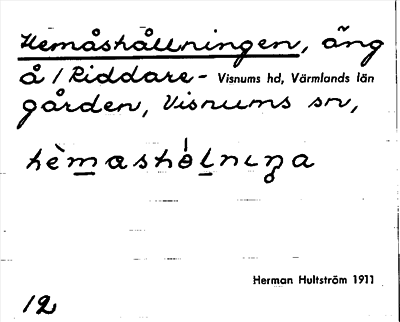 Hemåshållningen, äng
å /Riddare- Visnums hd, Värmlands län
gården, Visnums sn,
hè̱mashó̱lnıŋa
Herman Hultström 1911
12